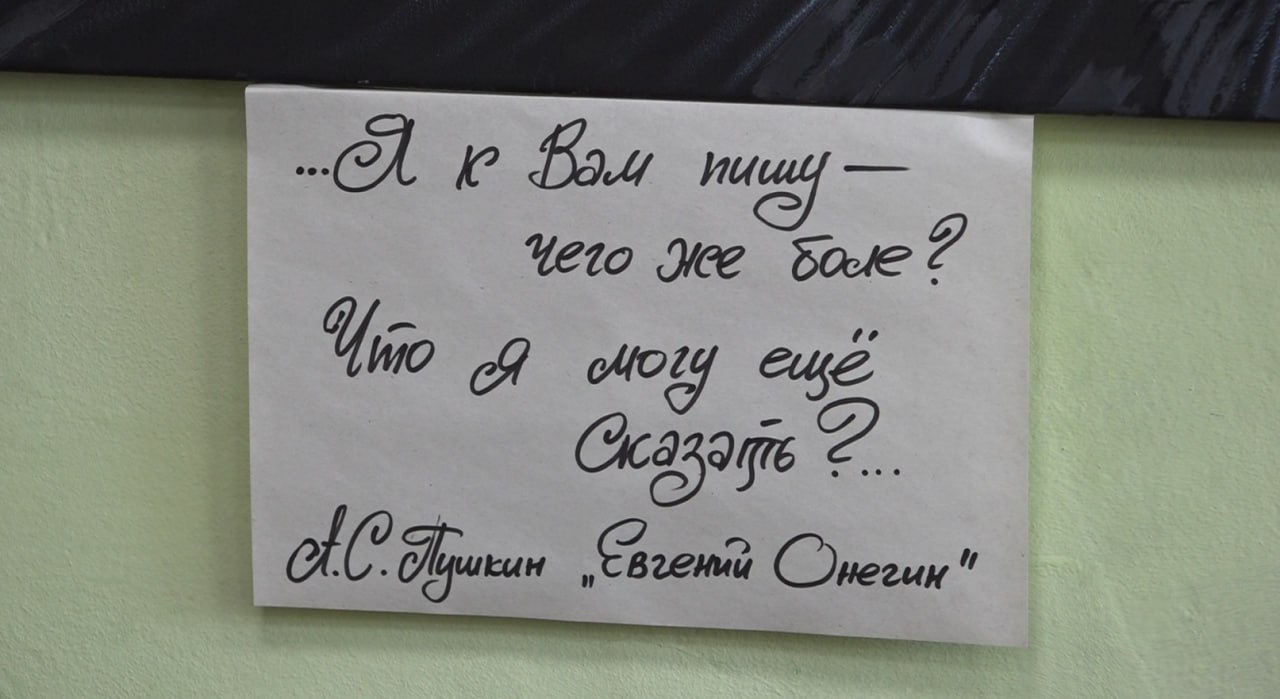 ...Я к Вам пишу —
чего же боле?
Что я могу ещё
Сказать?...
А.С. Пушкин „Евгений Онегин"